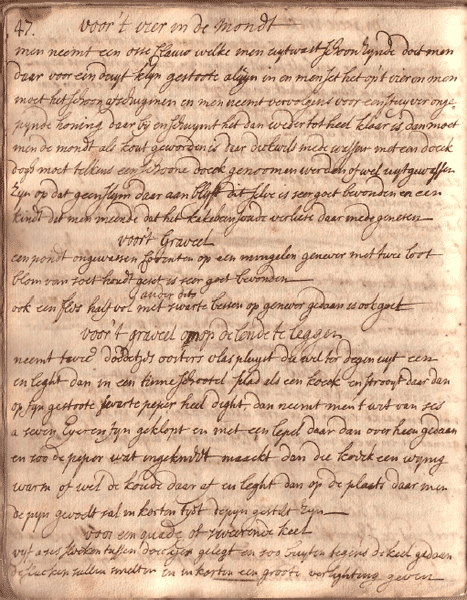 47. voor't vier in de mondt
men neemt een osse klauw welke men uytwast schoon zynde doet men
daar voor een duyt kleyn gestoote aluyn in en men set het op 't vier en men
moet het schoon en men neemt vervolgens voor een stuyver onge
pynde honing daar by en schuymt het dan weder tot heel klaar is dan moet
men de mondt als kout geworden is daar dikwils mede wassen met een doeck
dogh moet telkens een schoone doeck genoomen werden of wel uytgewassen
zyn op dat geen slym daar aan blyft dit selve is seer goet bevonden en een
kindt dat men meende dat het soude verliese daar mede genesen
voor't Graveel
een pondt ongewassen op een mengelen genever met twee loot
blom van soet houdt geset is seer goet bevonden
ander dito
ook een fles half vol met swarte bessen op genever gedaan is ook goet
voor't graveel om op de lende te leggen
neemt oosters vlas pluyst die wel ter degen uyt een
en leght dan in een tinne schootel plad als een koeck en stroyt daar dan
op fyn gestoote swarte peper heel dight dan neemt men 't wit van ses
a seven Eyeren fyn geklopt en met een lepel daar dan over heen gedaan
en soo de peper wat ingeknedt maeckt dan die koeck een wynig
warm of wel de koude daar af en leght dan op de plaats daar men
de pyn gevoelt sal in korten tydt de pyn gestilt zyn
voor een quade of sweerende keel
vyf a ses tussen doecken gelegt en soo buyten tegens de keel gedaen
sullen smelten en in korten een groote verlighting geven